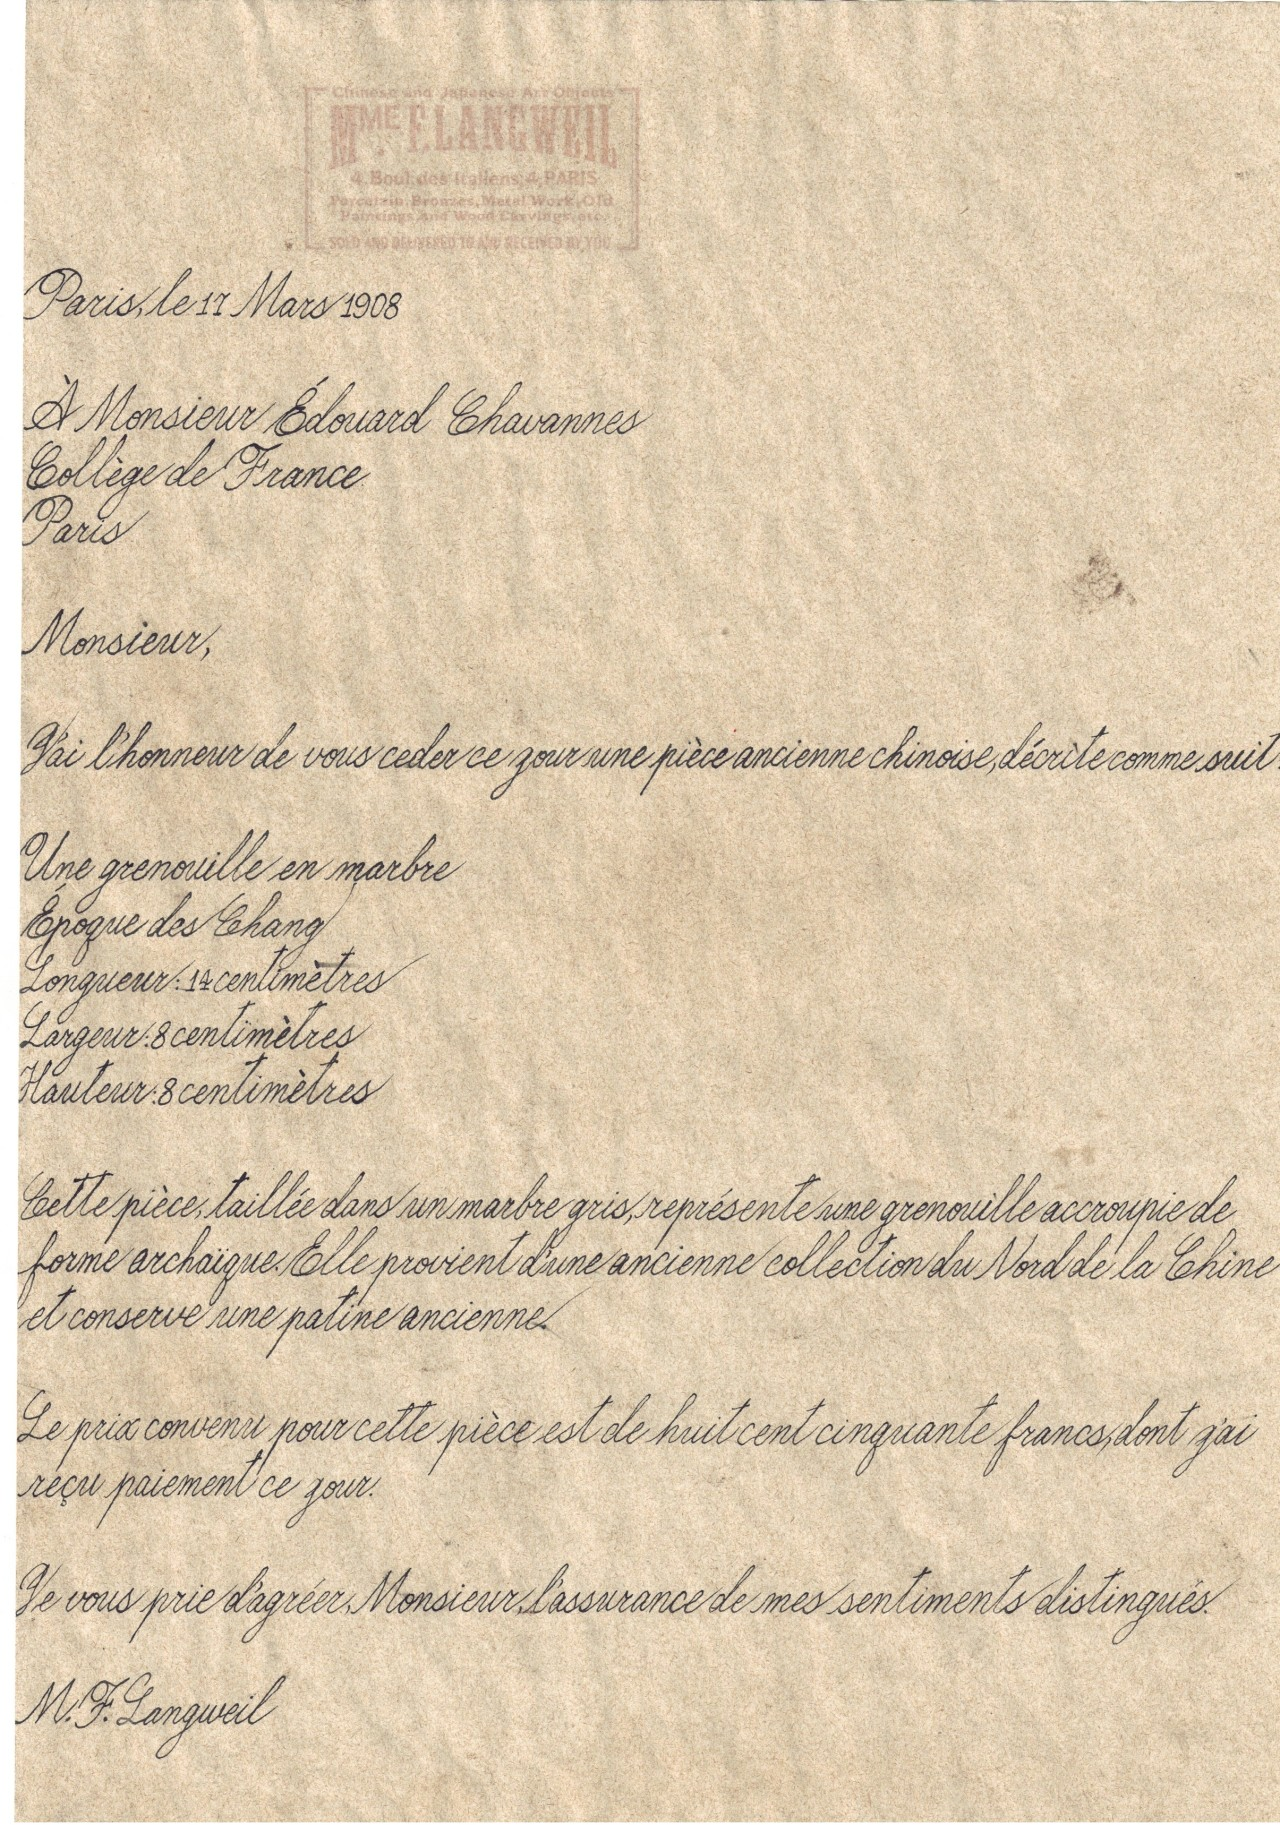 Chinese and Japanese Art Objects
MME. F. LANGWEIL
4, Boul. des Italiens, 4, PARIS
Porcelain, Bronzes, Metal Work, Old
Paintings and Wood Carvings, etc.
SOLD AND DELIVERED TO AND RECEIVED BY YOU
Paris, le 17 Mars 1908
À Monsieur Édouard Chavannes
Collège de France
Paris
Monsieur,
J'ai l'honneur de vous ceder ce jour une pièce ancienne chinoise, décrite comme suit:
Une grenouille en marbre
Époque des Chang
Longueur: 14 centimètres
Largeur: 8 centimètres
Hauteur: 8 centimètres
Cette pièce, taillée dans un marbre gris, représente une grenouille accroupie de
forme archaïque. Elle provient d'une ancienne collection du Nord de la Chine
et conserve une patine ancienne.
Le prix convenu pour cette pièce est de huit cent cinquante francs, dont j'ai
reçu paiement ce jour.
Je vous prie d'agréer, Monsieur, l'assurance de mes sentiments distingués.
M. F. Langweil